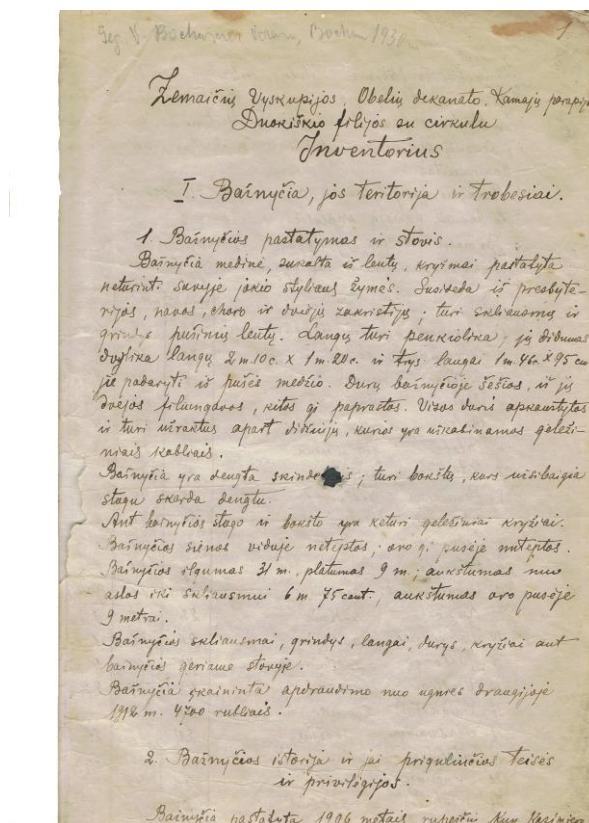 1
Žemaičių Vyskupijos, Obelių dekanato, Kamajų parapijos
Duokiškio filijos su cirkulu
Inventorius
I. Bažnyčia, jos teritorija ir trobesiai.
1. Bažnyčios pastatymas ir stovis.
Bažnyčia medinė, sukalta iš lentų, kryžmai pastatyta
neturint. savyje jokio styliaus žymės. Susiveda iš presbyte-
rijos, navos, choro ir dviejų zakristijų; turi skliausmus ir
grindys pušinių lentų. Langų turi penkiolika; jų didumas
dvylika langų 2 m. 10 c. X 1 m. 20 c. ir trys langai 1 m. 46 c. X 95 cm
jie padaryti iš pušės medžio. Durų bažnyčioje šešios, iš jų
dvejos filiungavos, kitos gi paprastos. Visos durys apkaustytos
ir turi užraktus apart didžiųjų, kurios yra užkabinamos geleži-
niais kabliais.
Bažnyčia yra dengta; turi bokštą, kurs užsibaigia
stogu skarda dengtu.
Ant bažnyčios stogo ir bokšto yra keturi geležiniai kryžiai.
Bažnyčios sienos viduje neteptos; oro gi pusėje nuteptos.
Bažnyčios ilgumas 31 m., platumas 9 m.; aukštumas nuo
aslos iki skliausmui 6 m 75 cent., aukštumas oro pusėje
9 metrai.
Bažnyčios skliausmai, grindys, langai, durys, kryžiai ant
bažnyčios geriame stovyje.
Bažnyčia įkaininta apdraudimo nuo ugnies draugijoje
1912 m. 4700 rubliais.
2. Bažnyčios istorija ir jai prigulinčios teisės
ir priviligijos.
Bažnyčia pastatyta 1906 metais rupesčiu Kun. Kazimiero